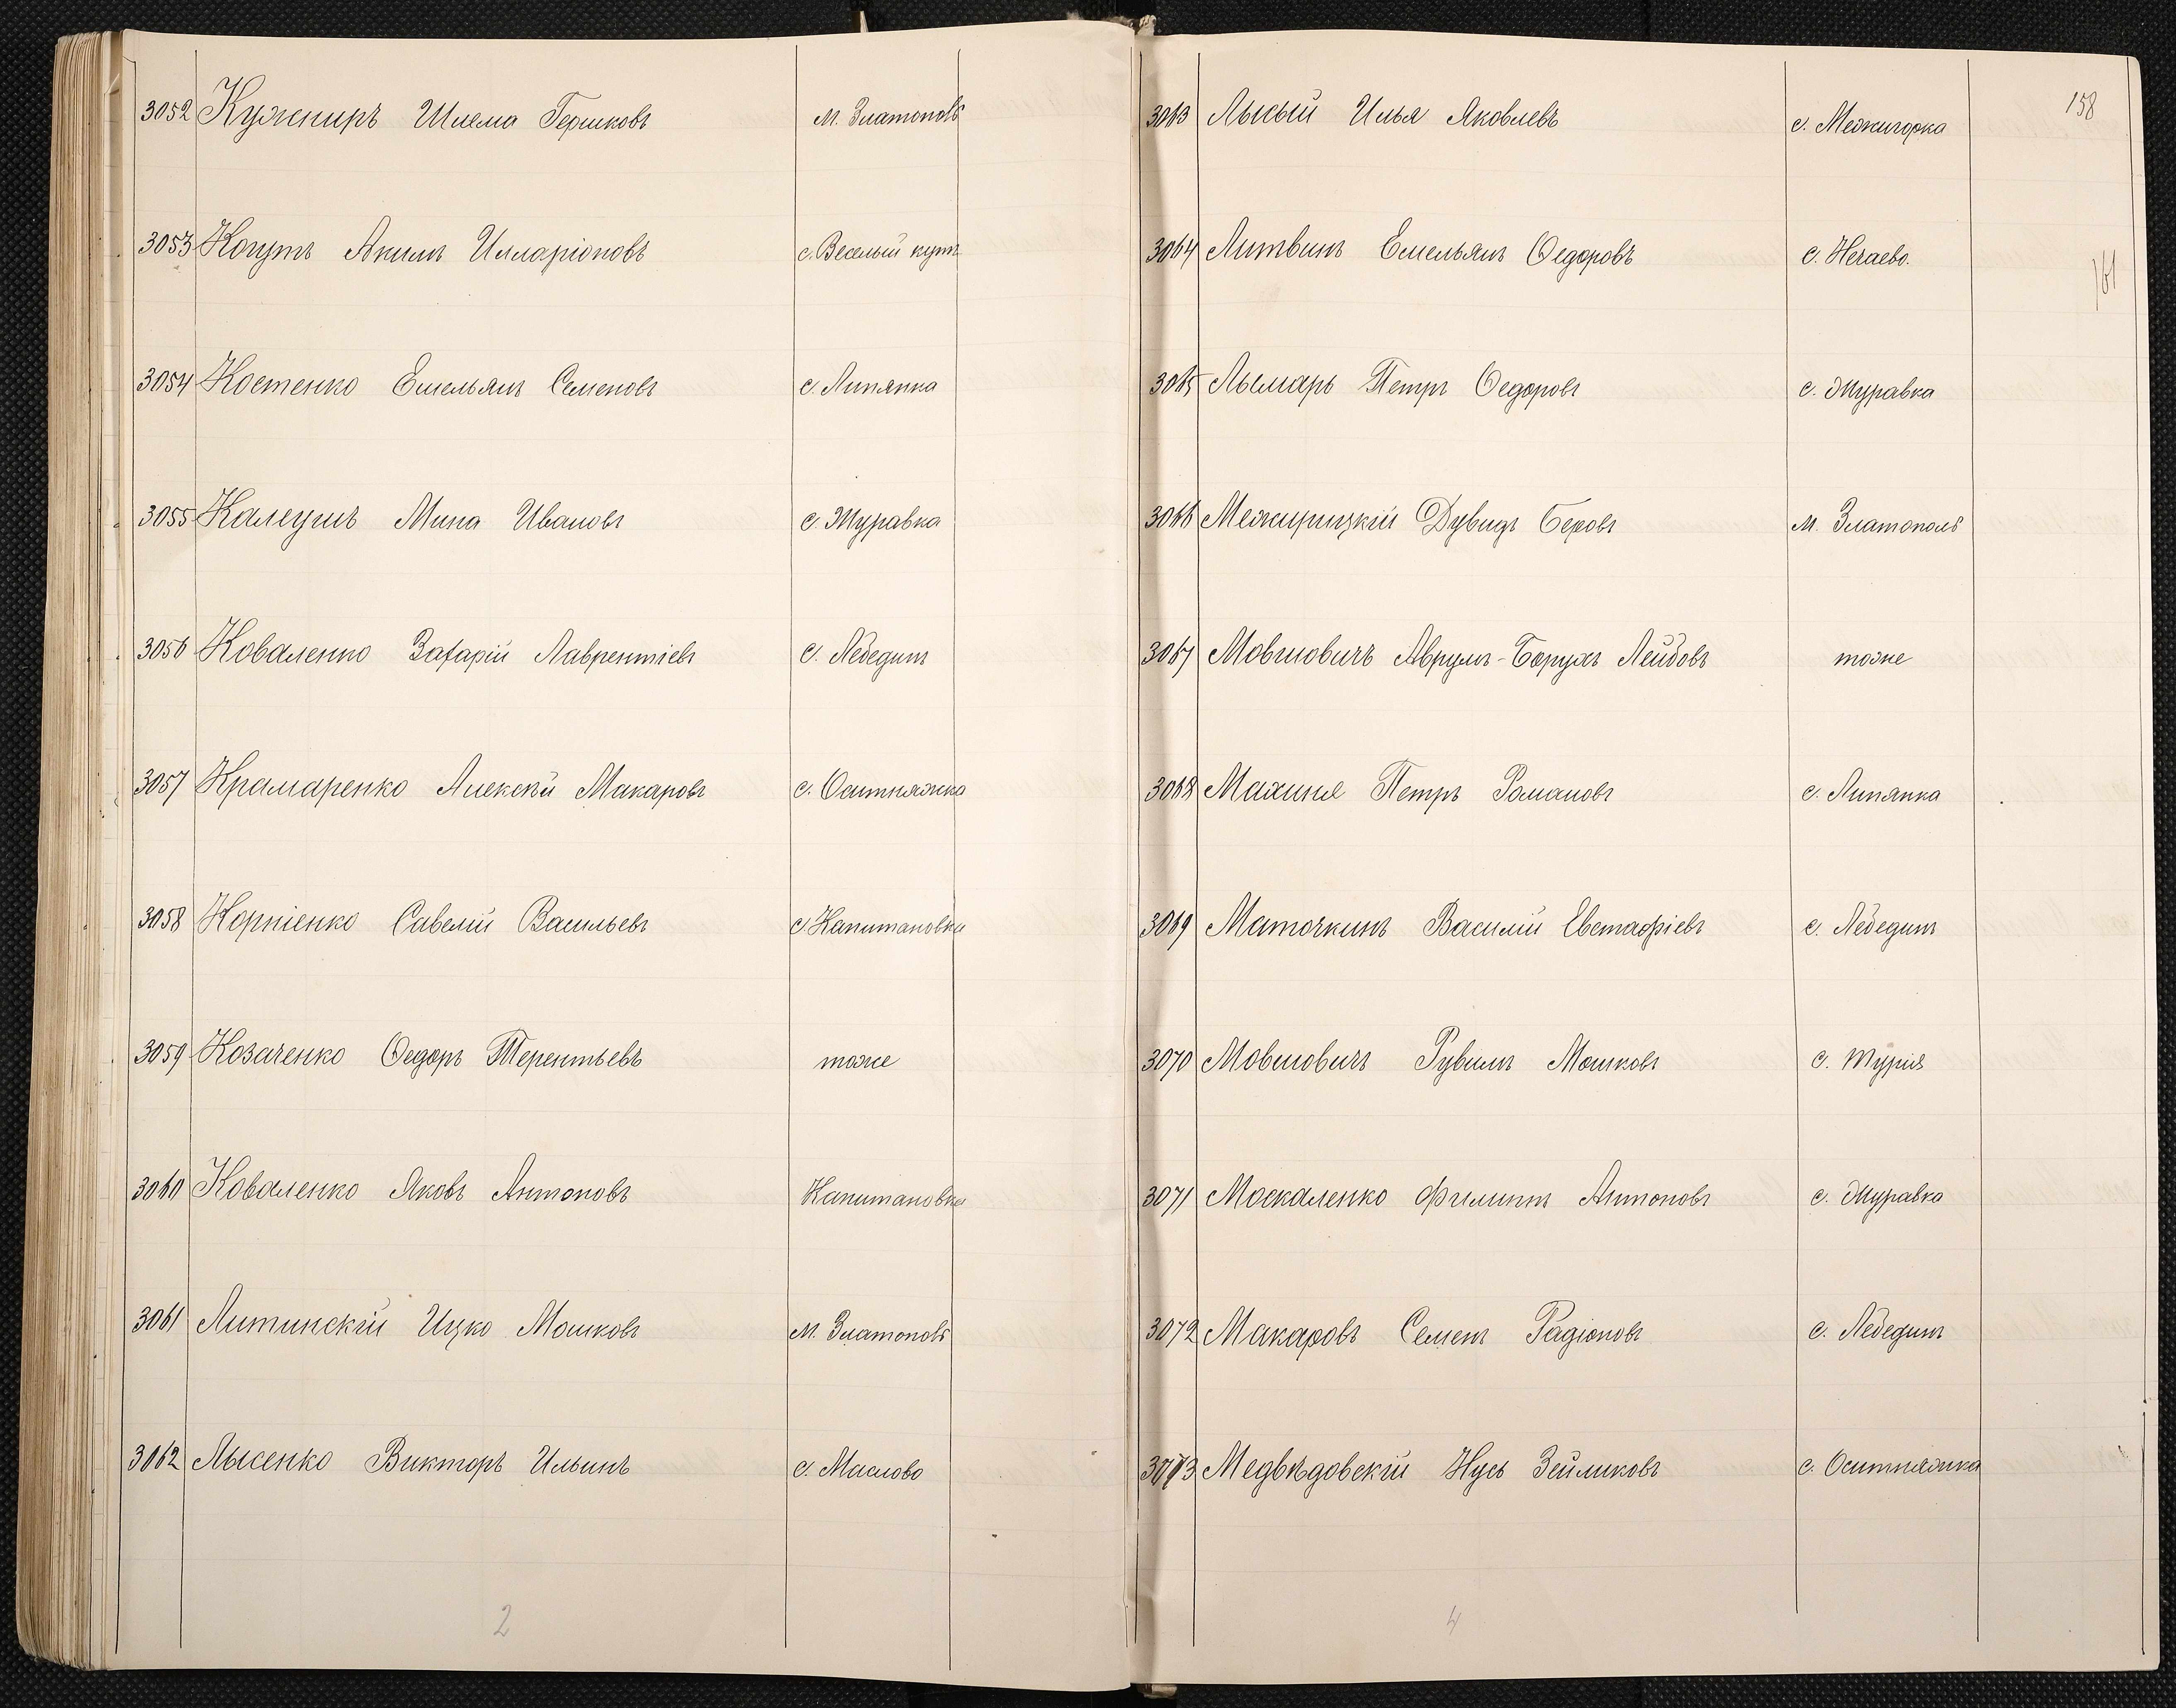 3052 Кужниръ Шлема Гершковъ м. Златополь
3053 Когутъ Акимъ Илларіоновъ с. Веселый кутъ
3054 Костенко Емельянъ Семеновъ с. Липянка
3055 Калеушъ Мина Ивановъ с. Журавка
3056 Коваленко Захарій Лаврентіевъ с. Лебединъ
3057 Крамаренко Алексѣй Макаровъ с. Оситняжка
3058 Корніенко Савелій Васильевъ с. Капитановка
3059 Козаченко Ѳедоръ Терентьевъ тоже
3060 Коваленко Яковъ Антоновъ Капитановка
3061 Литинскій Ицко Мошковъ м. Златополь
3062 Лысенко Викторъ Ильинъ с. Маслово
2
158
3063 Лысый Илья Яковлевъ с. Межигорка
3064 Литвинъ Емельянъ Ѳедоровъ с. Нечаево.
161
3065 Лымарь Петръ Ѳедоровъ с. Журавка
3066 Межирицкій Дувидъ Беровъ м. Златополь
3067 Мовшовичъ Аврумъ-Борухъ Лейбовъ тоже
3068 Махиня Петръ Романовъ с. Липянка
3069 Маточкинъ Василій Евстафіевъ с. Лебединъ
3070 Мовшовичъ Рувимъ Мошковъ с. Турія
3071 Москаленко Филиппъ Антоновъ с. Журавка
3072 Макаровъ Семенъ Радіоновъ с. Лебединъ
3073 Медвѣдовскій Нусь Зейликовъ с. Оситняжка
4